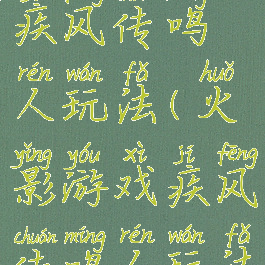 疾风传鸣
rén wán fǎ huǒ
人玩法(火
yǐng yóu xì jí fēng
影游戏疾风
chuán míng rén wán fǎ
传鸣人玩法